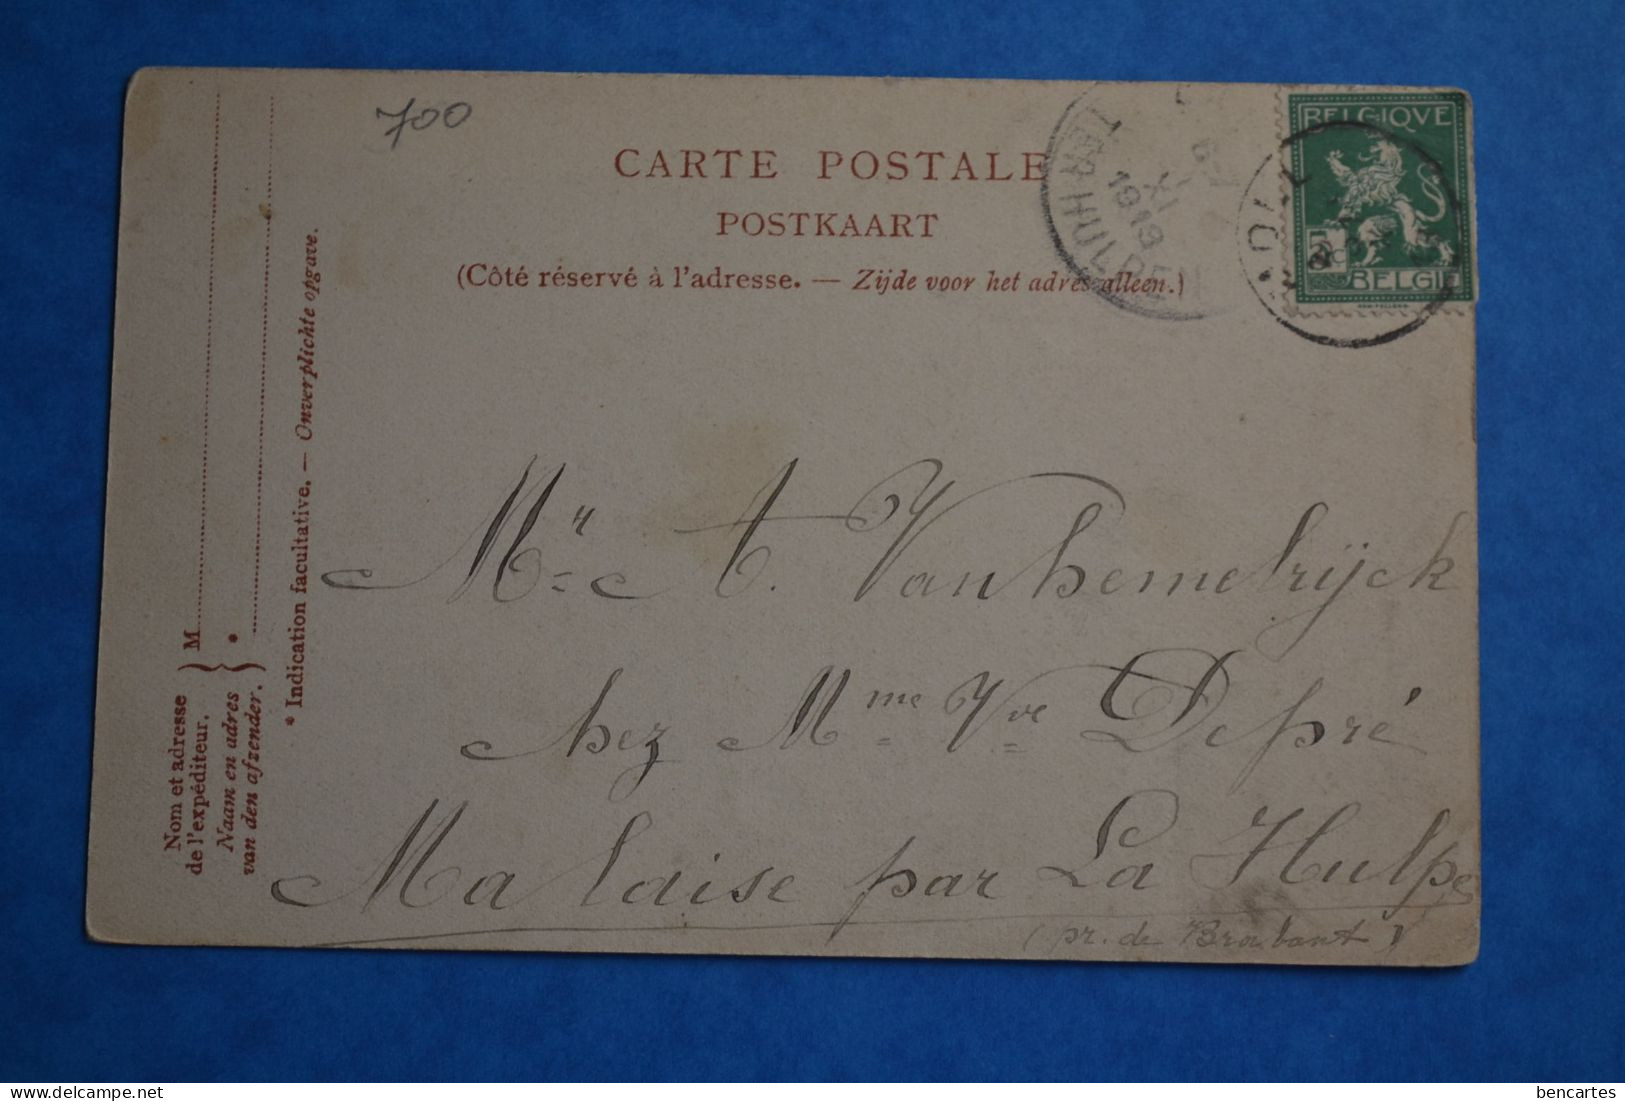 700
CARTE POSTALE
POSTKAART
(Côté réservé à l'adresse. — Zijde voor het adres alleen.)
TERHULPEN
XI
1913
BELGIQVE
5
BELGIË
Mr A. Vanhemelrijck
chez Mme Vve Depré
Malaise par La Hulpe
(pr. de Brabant)
M
Nom et adresse
de l'expéditeur.
Naam en adres
van den afzender.
*
* Indication facultative. — Onverplichte opgave.
bencartes